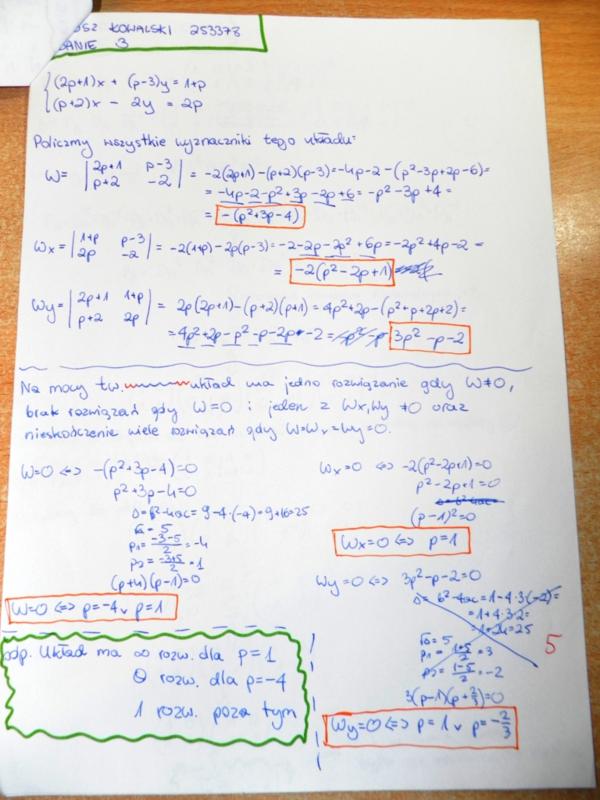 OSZ KOWALSKI 253378
DANIE 3
{(2p+1)x + (p-3)y = 1+p
(p+2)x - 2y = 2p
Policzmy wszystkie wyznaczniki tego układu:
W = |2p+1 p-3| = -2(2p+1)-(p+2)(p-3)=-4p-2-(p²-3p+2p-6)=
|p+2 -2|
= -4p-2-p²+3p-2p+6 = -p²-3p+4 =
= -(p²+3p-4)
Wx = |1+p p-3| = -2(1+p)-2p(p-3)=-2-2p-2p²+6p=-2p²+4p-2 =
|2p -2|
= -2(p²-2p+1)
Wy = |2p+1 1+p| = 2p(2p+1)-(p+2)(p+1)=4p²+2p-(p²+p+2p+2)=
|p+2 2p|
= 4p²+2p-p²-p-2p-2= 3p²-p-2
Na mocy tw. układ ma jedno rozwiązanie gdy W≠0,
brak rozwiązań gdy W=0 i jeden z Wx,Wy ≠0 oraz
nieskończenie wiele rozwiązań gdy W=Wx=Wy=0.
W=0 ⇔ -(p²+3p-4)=0
p²+3p-4=0
Δ=b²-4ac=9-4·(-4)=9+16=25
√Δ=5
p1=(-3-5)/2=-4
p2=(-3+5)/2=1
(p+4)(p-1)=0
W=0 ⇔ p=-4 v p=1
Wx=0 ⇔ -2(p²-2p+1)=0
p²-2p+1=0
Δ=b²-4ac=
(p-1)²=0
Wx=0 ⇔ p=1
Wy=0 ⇔ 3p²-p-2=0
Δ=b²-4ac=1-4·3(-2)=
=1+4·3·2=
=1+24=25
√Δ=5
p1=(1+5)/2=3
p2=(1-5)/2=-2
3(p-1)(p+2/3)=0
Wy=0 ⇔ p=1 v p=-2/3
5
odp. Układ ma ∞ rozw. dla p=1
0 rozw. dla p=-4
1 rozw. poza tym